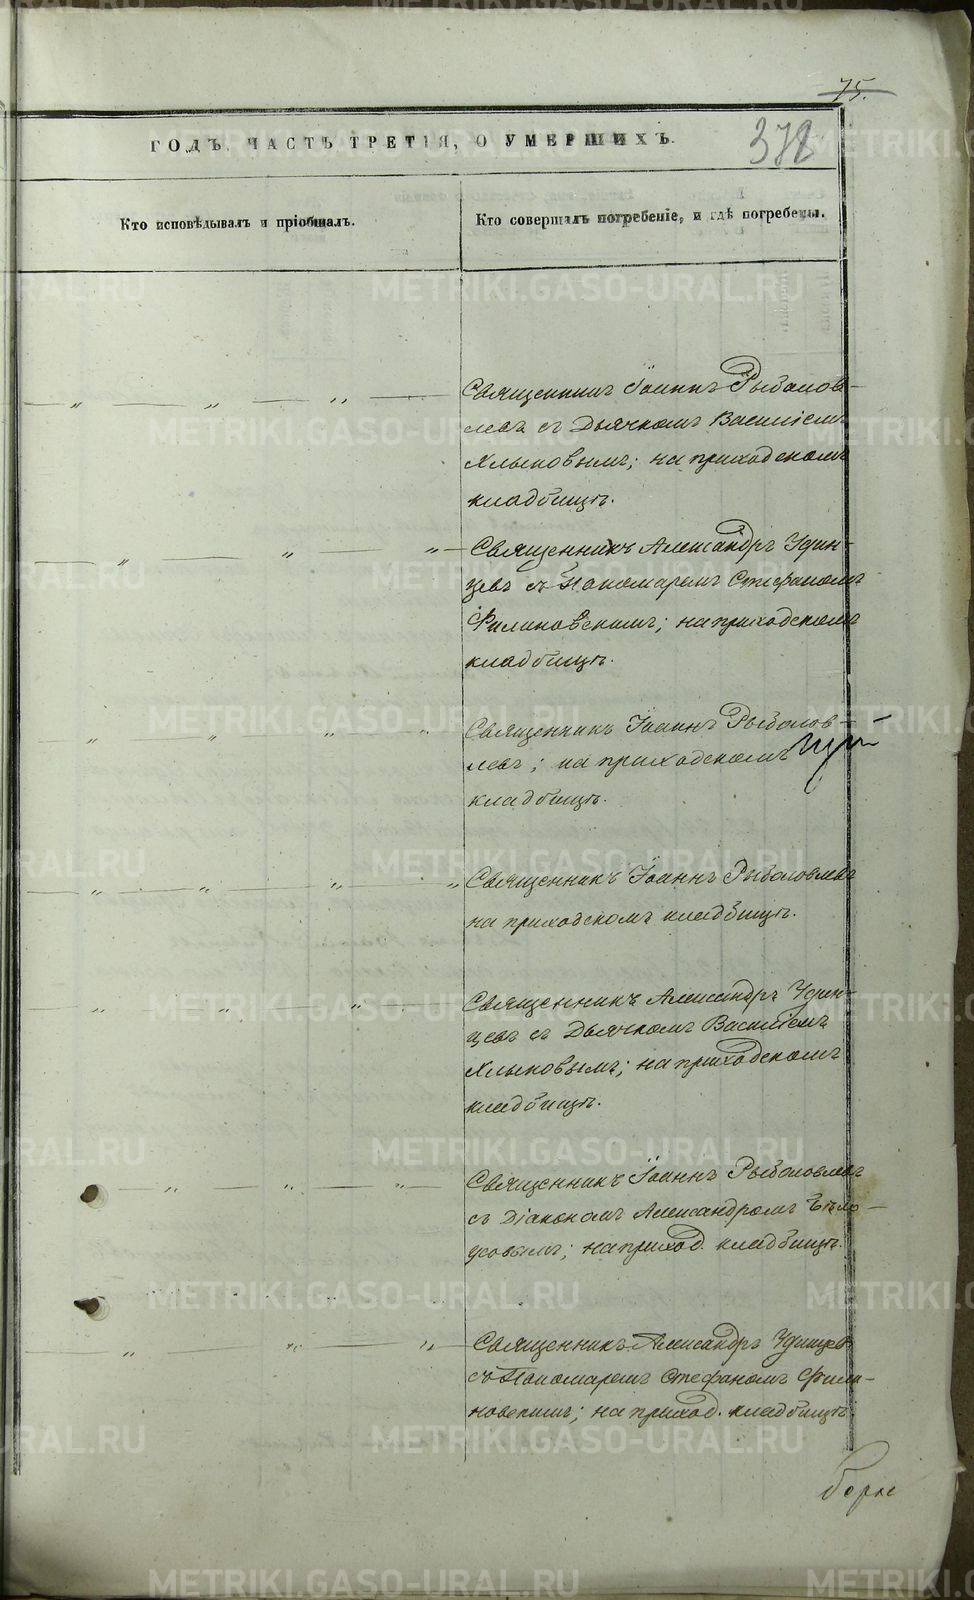 75.
ГОДЪ, ЧАСТЬ ТРЕТІЯ, О УМЕРШИХЪ.
372
Кто исповѣдывалъ и пріобщалъ.
Кто совершалъ погребеніе, и гдѣ погребены.
Священникъ Іоаннъ Рыболов-
левъ съ Дьячкомъ Василіемъ
Хлыновымъ; на приходскомъ
кладбищѣ.
Священникъ Александръ Удин-
цевъ съ Пономаремъ Стефаномъ
Филиновскимъ; на приходскомъ
кладбищѣ.
Священникъ Іоаннъ Рыболов-
левъ; на приходскомъ
кладбищѣ.
Священникъ Іоаннъ Рыболовлевъ
на приходскомъ кладбищѣ.
Священникъ Александръ Удин-
цевъ съ Дьячкомъ Василіемъ
Хлыновымъ; на приходскомъ
кладбищѣ.
Священникъ Іоаннъ Рыболовлевъ
съ Діакономъ Александромъ Бѣло-
усовымъ; на приход. кладбищѣ.
Священникъ Александръ Удинцевъ
съ Пономаремъ Стефаномъ Фили-
новскимъ; на приход. кладбищѣ.
METRIKI.GASO-URAL.RU